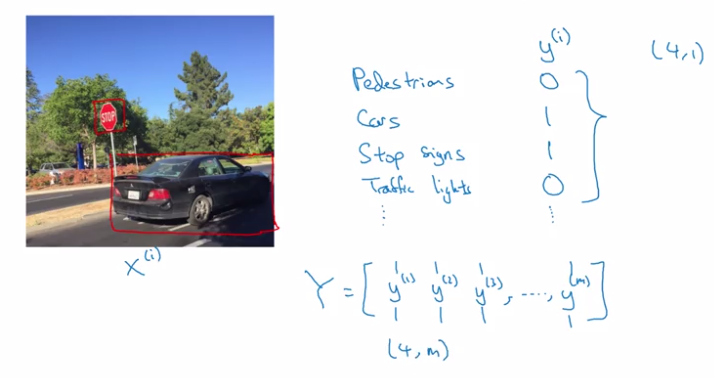 STOP
y^(i) (4,1)
Pedestrians 0
Cars 1
Stop signs 1
Traffic lights 0
⋮ ⋮
x^(i)
Y = [ y^(1) y^(2) y^(3), ----, y^(m) ]
(4, m)